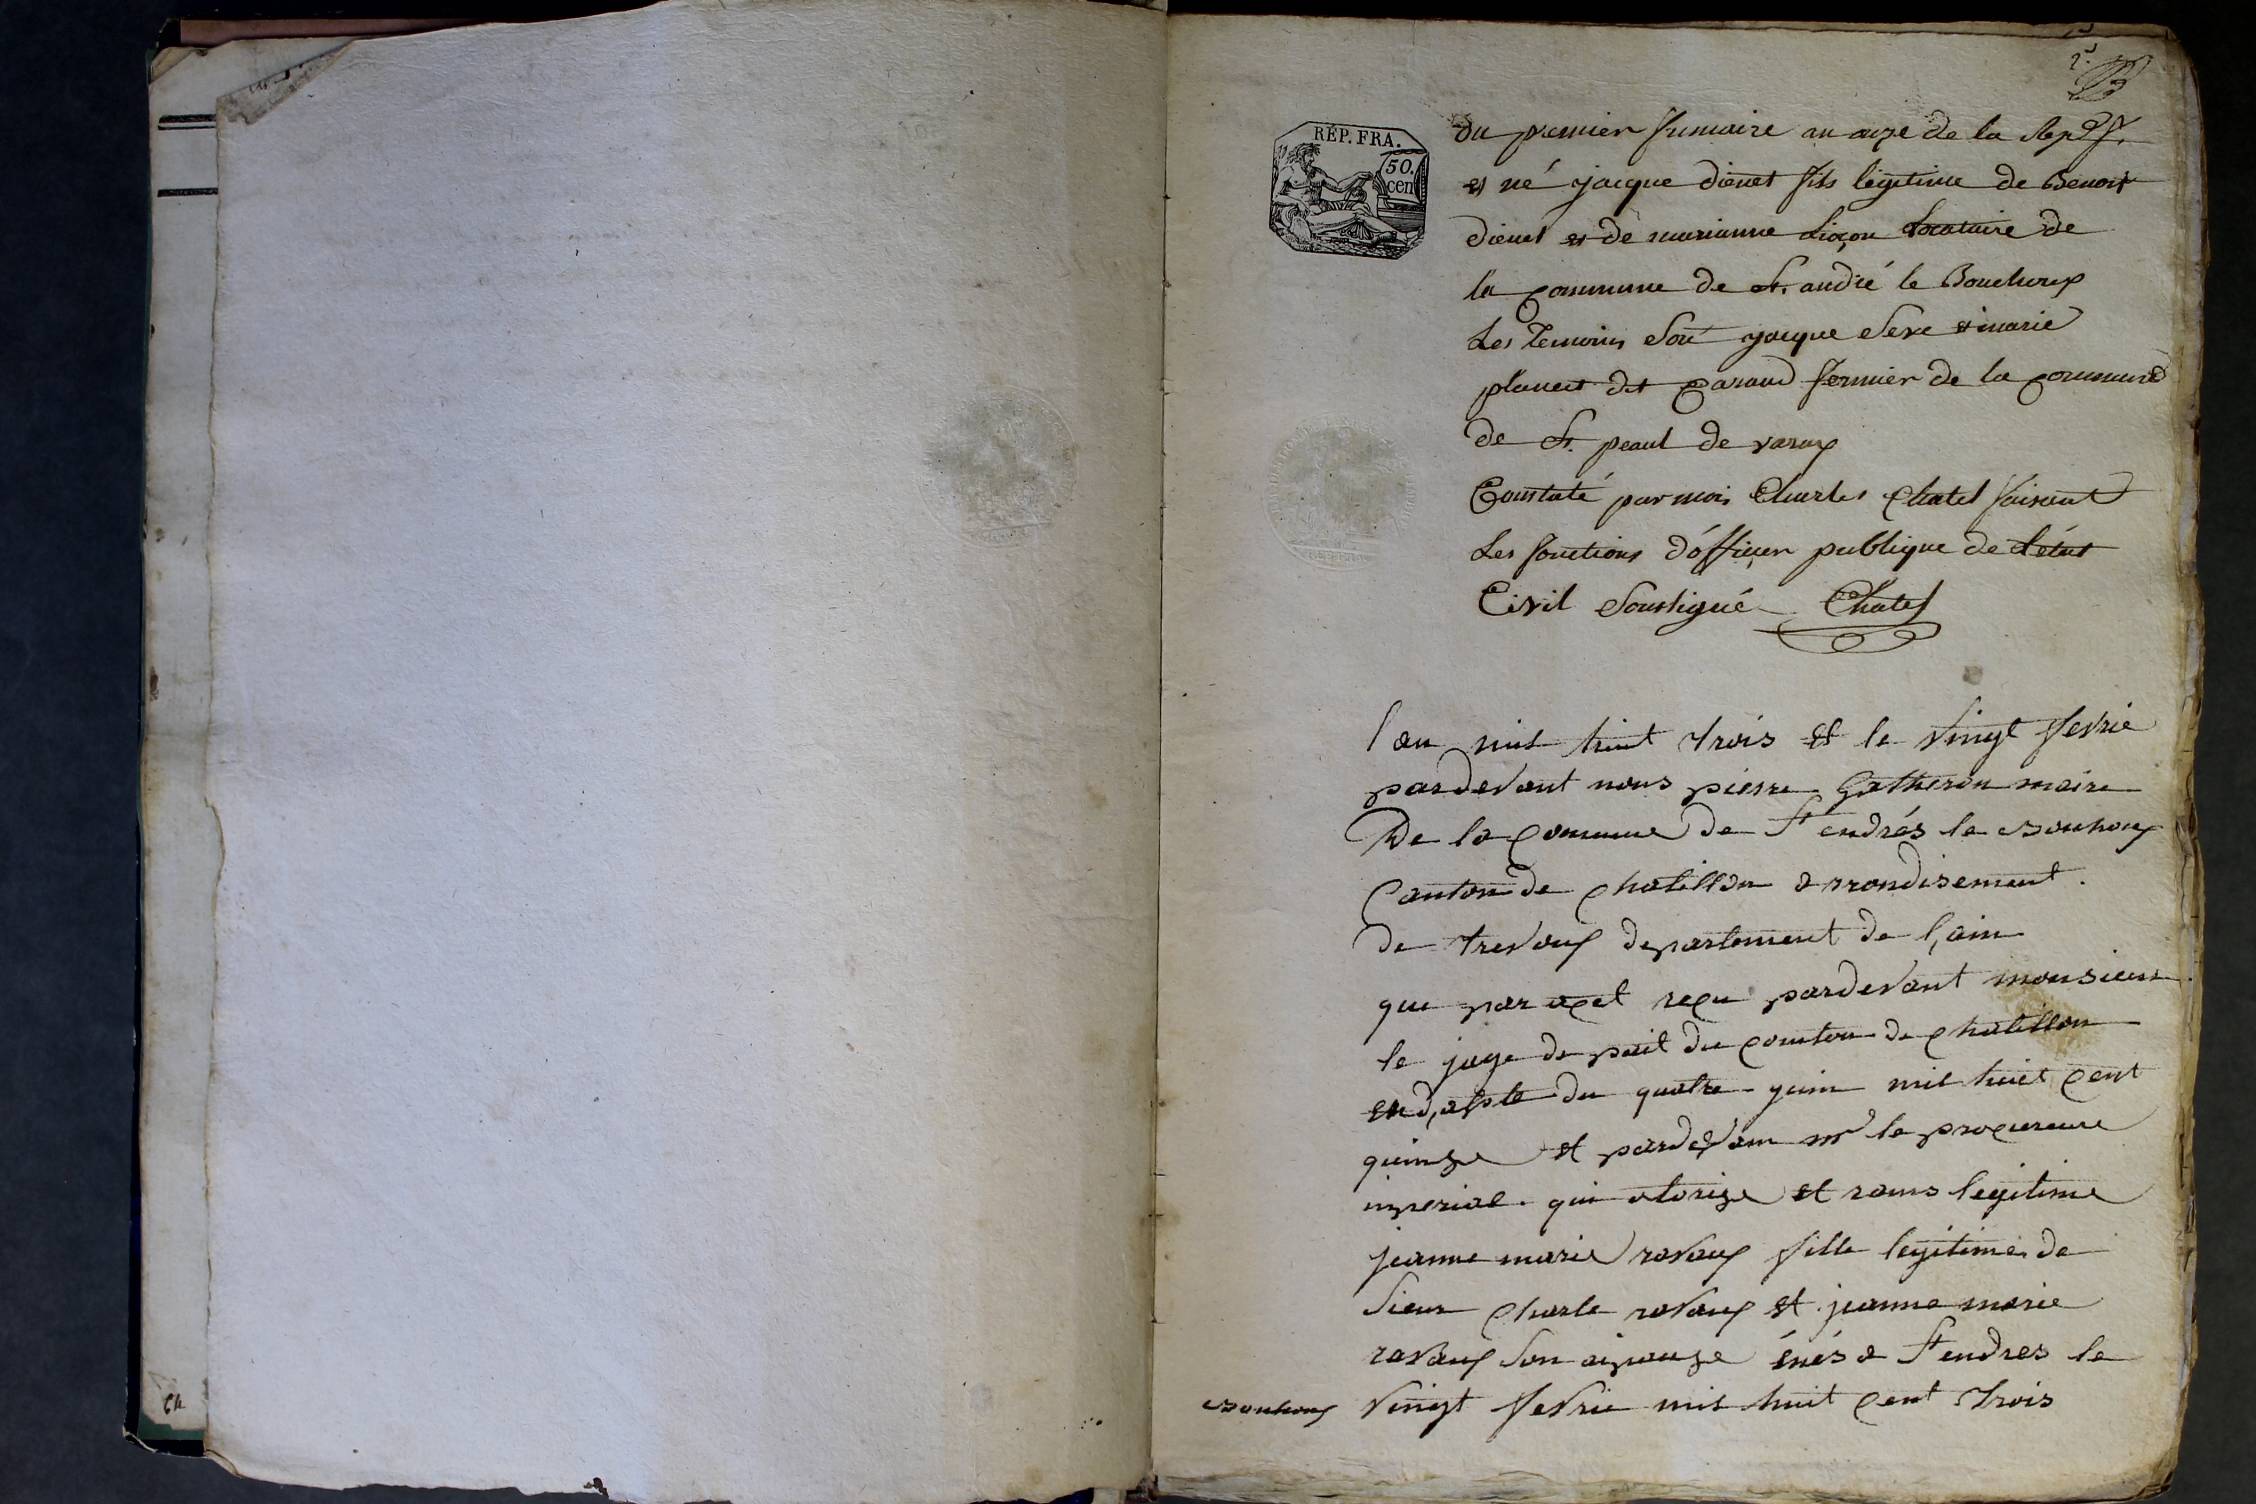 2.
RÉP. FRA.
50.
cen
du premier frimaire an onze de la Rep. f.
et né jacque dienet fils légitime de Benoit
dienet et de marianne locataire de
la commune de St. andré le Bouchoux
Les Temoins Sont jacque Seve et marie
planet dit paraud fermier de la commune
de St. peaul de varax
Constaté par moi Charles Chatel faisant
Les fonctions d'officier publique de L'état
Civil Soussigné Chatel
l an mil huit trois et le vingt fevrie
pardevant nous pierre Gatheron maire
De la Commune de St endrés le bouhoux
Canton de Chatillon arrondisement
de trevoux departement de l'ain
que par acet reçu pardevant monsieur
le juge de pail du conton de Chatillon
en d,apte du quatre juin mil huiet cent
quinze et pardevan mr le procureure
imperial qui otorize et rans legitime
jeanne marie ravaux fille legitime de
Sieur Charle ravaux et jeanne marie
ravaux Son aipouze énés a St endres le
bouhoux vingt fevrie mil huit cent trois